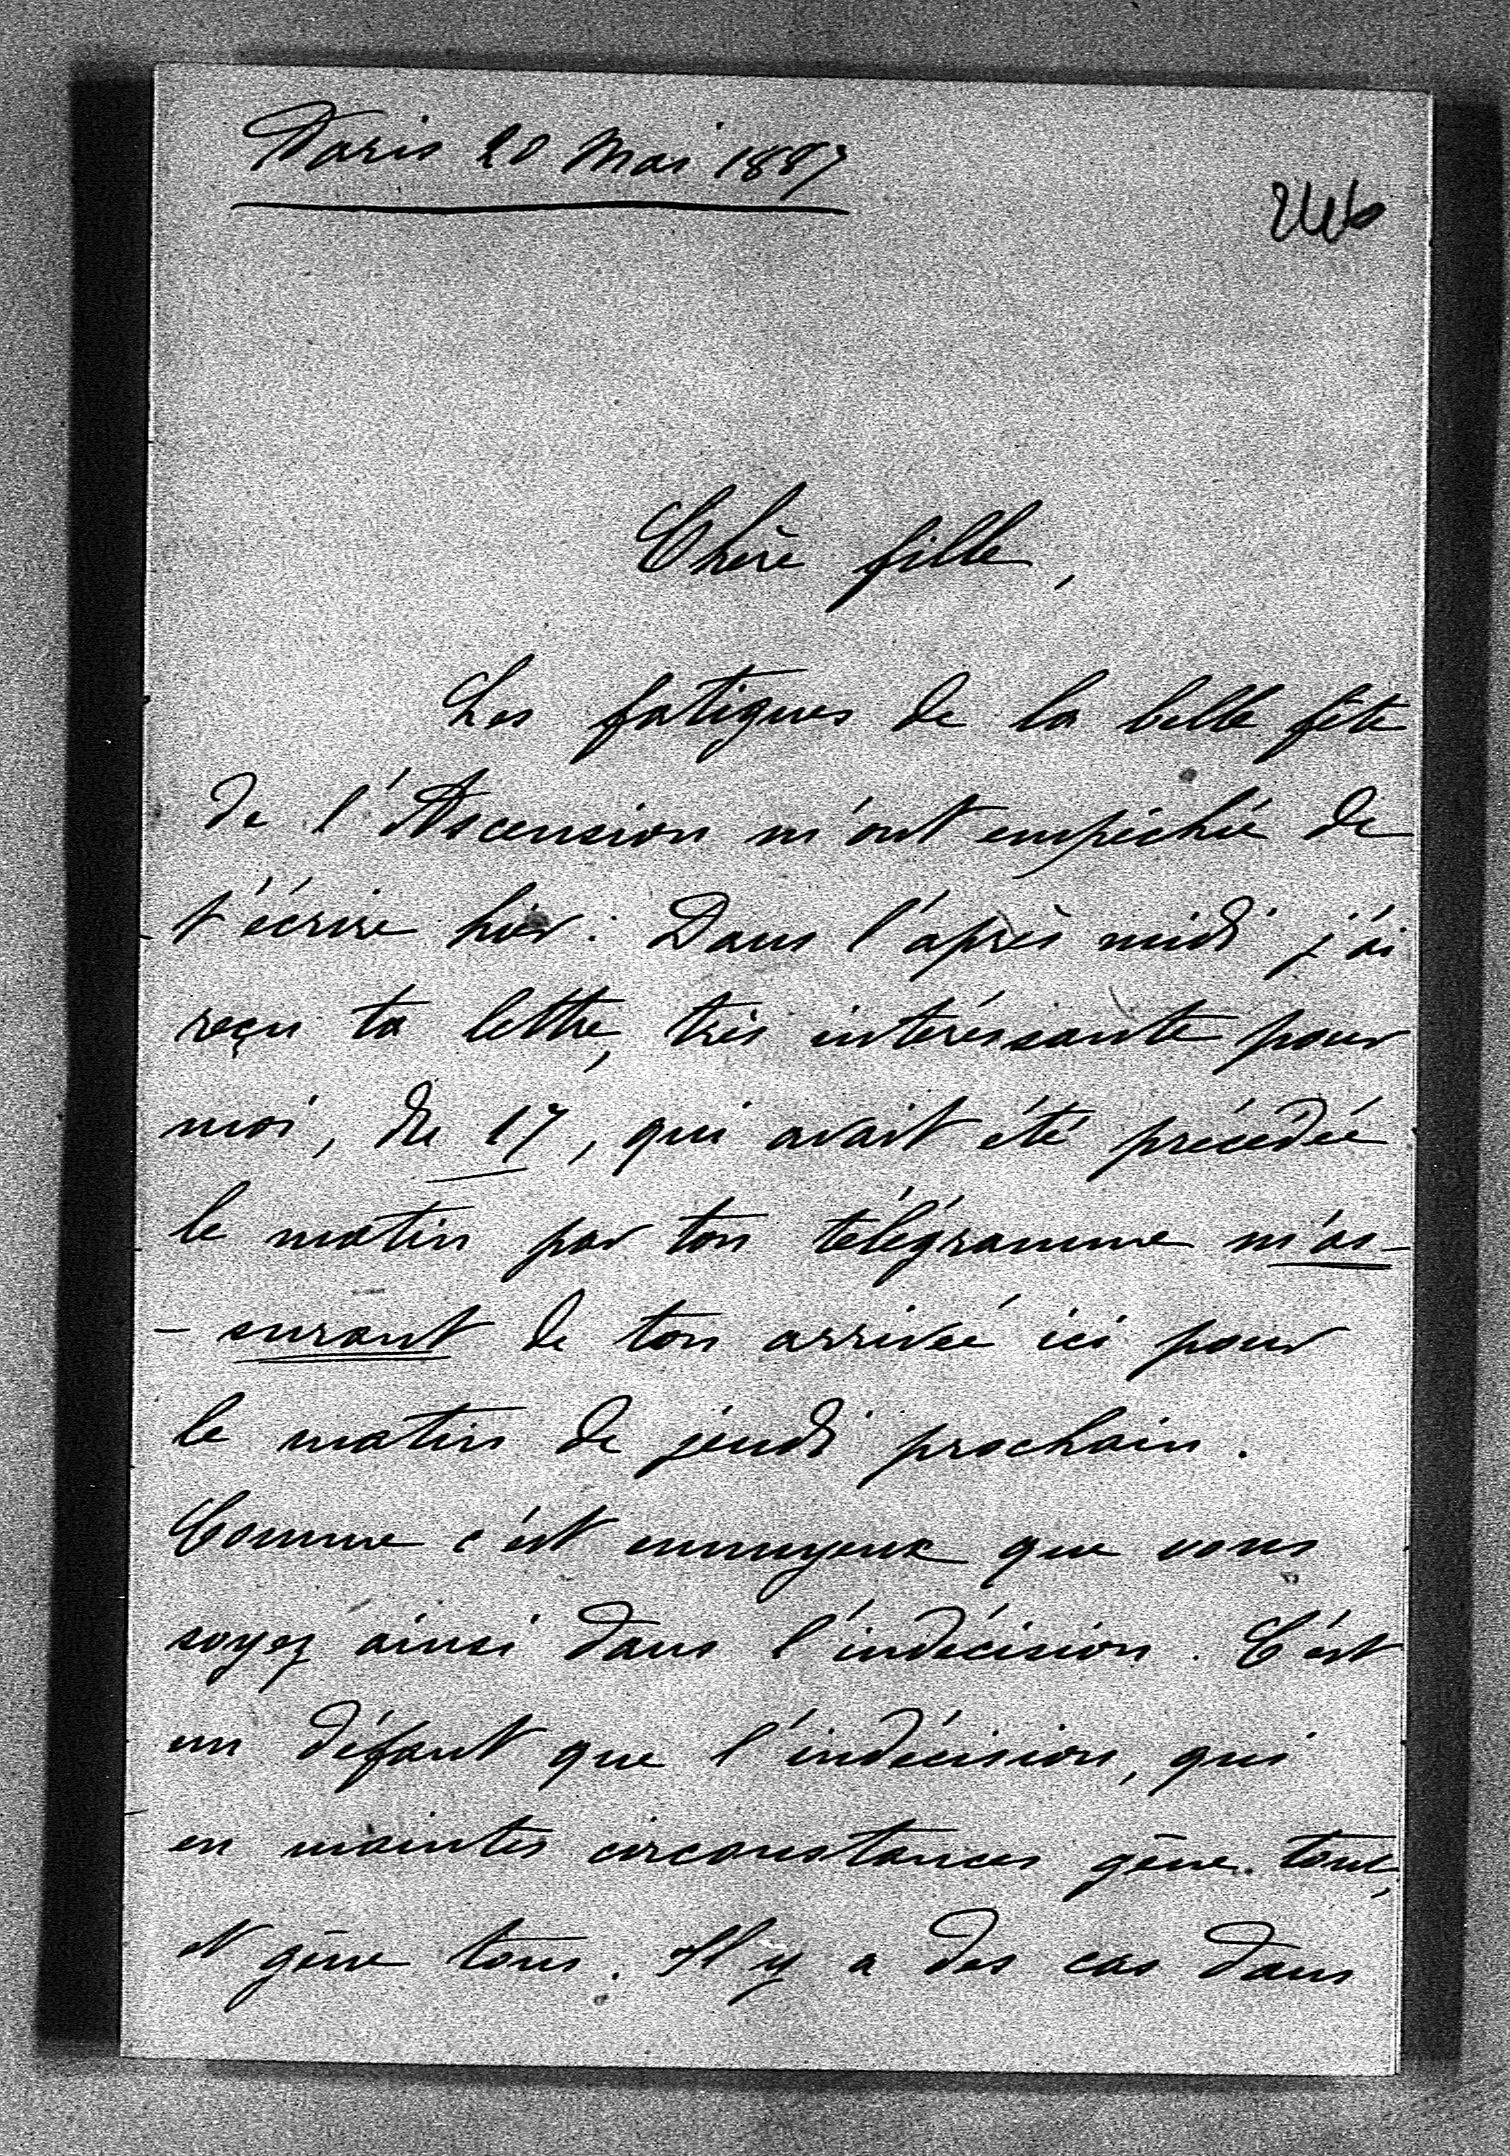 Paris 20 Mai 1887
246
Chère fille,
Les fatigues de la belle fête
de l'Ascension m'ont empéchée de
t'écrire hier. Dans l'après midi j'ai
reçu ta lettre, très intéressante pour
moi, du 17, qui avait été précédée
le matin par ton télégramme m'as-
-surant de ton arrivée ici pour
le matin de jeudi prochain.
Comme c'est ennuyeux que vous
soyez ainsi dans l'indécision. C'est
un défaut que l'indécision, qui
en maintes circonstances gêne tout,
et gêne tous. Il y a des cas dans